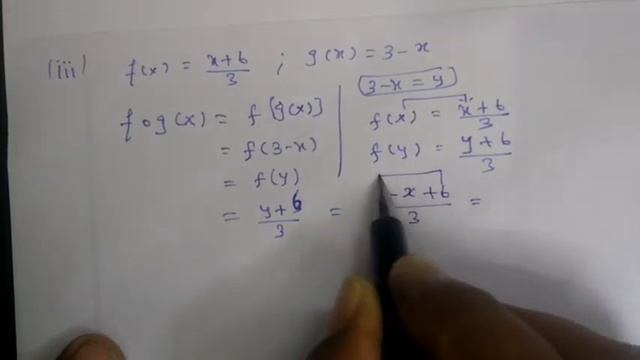 (iii) f(x) = x+6/3 ; g(x) = 3-x
fog(x) = f[g(x)]
= f(3-x)
= f(y)
= y+6/3 = -x+6/3 =
(3-x = y)
f(x) = x+6/3
f(y) = y+6/3